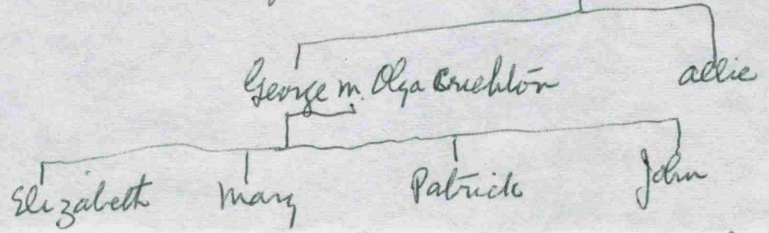 George m. Olga Crichton Allie
Elizabeth Mary Patrick John